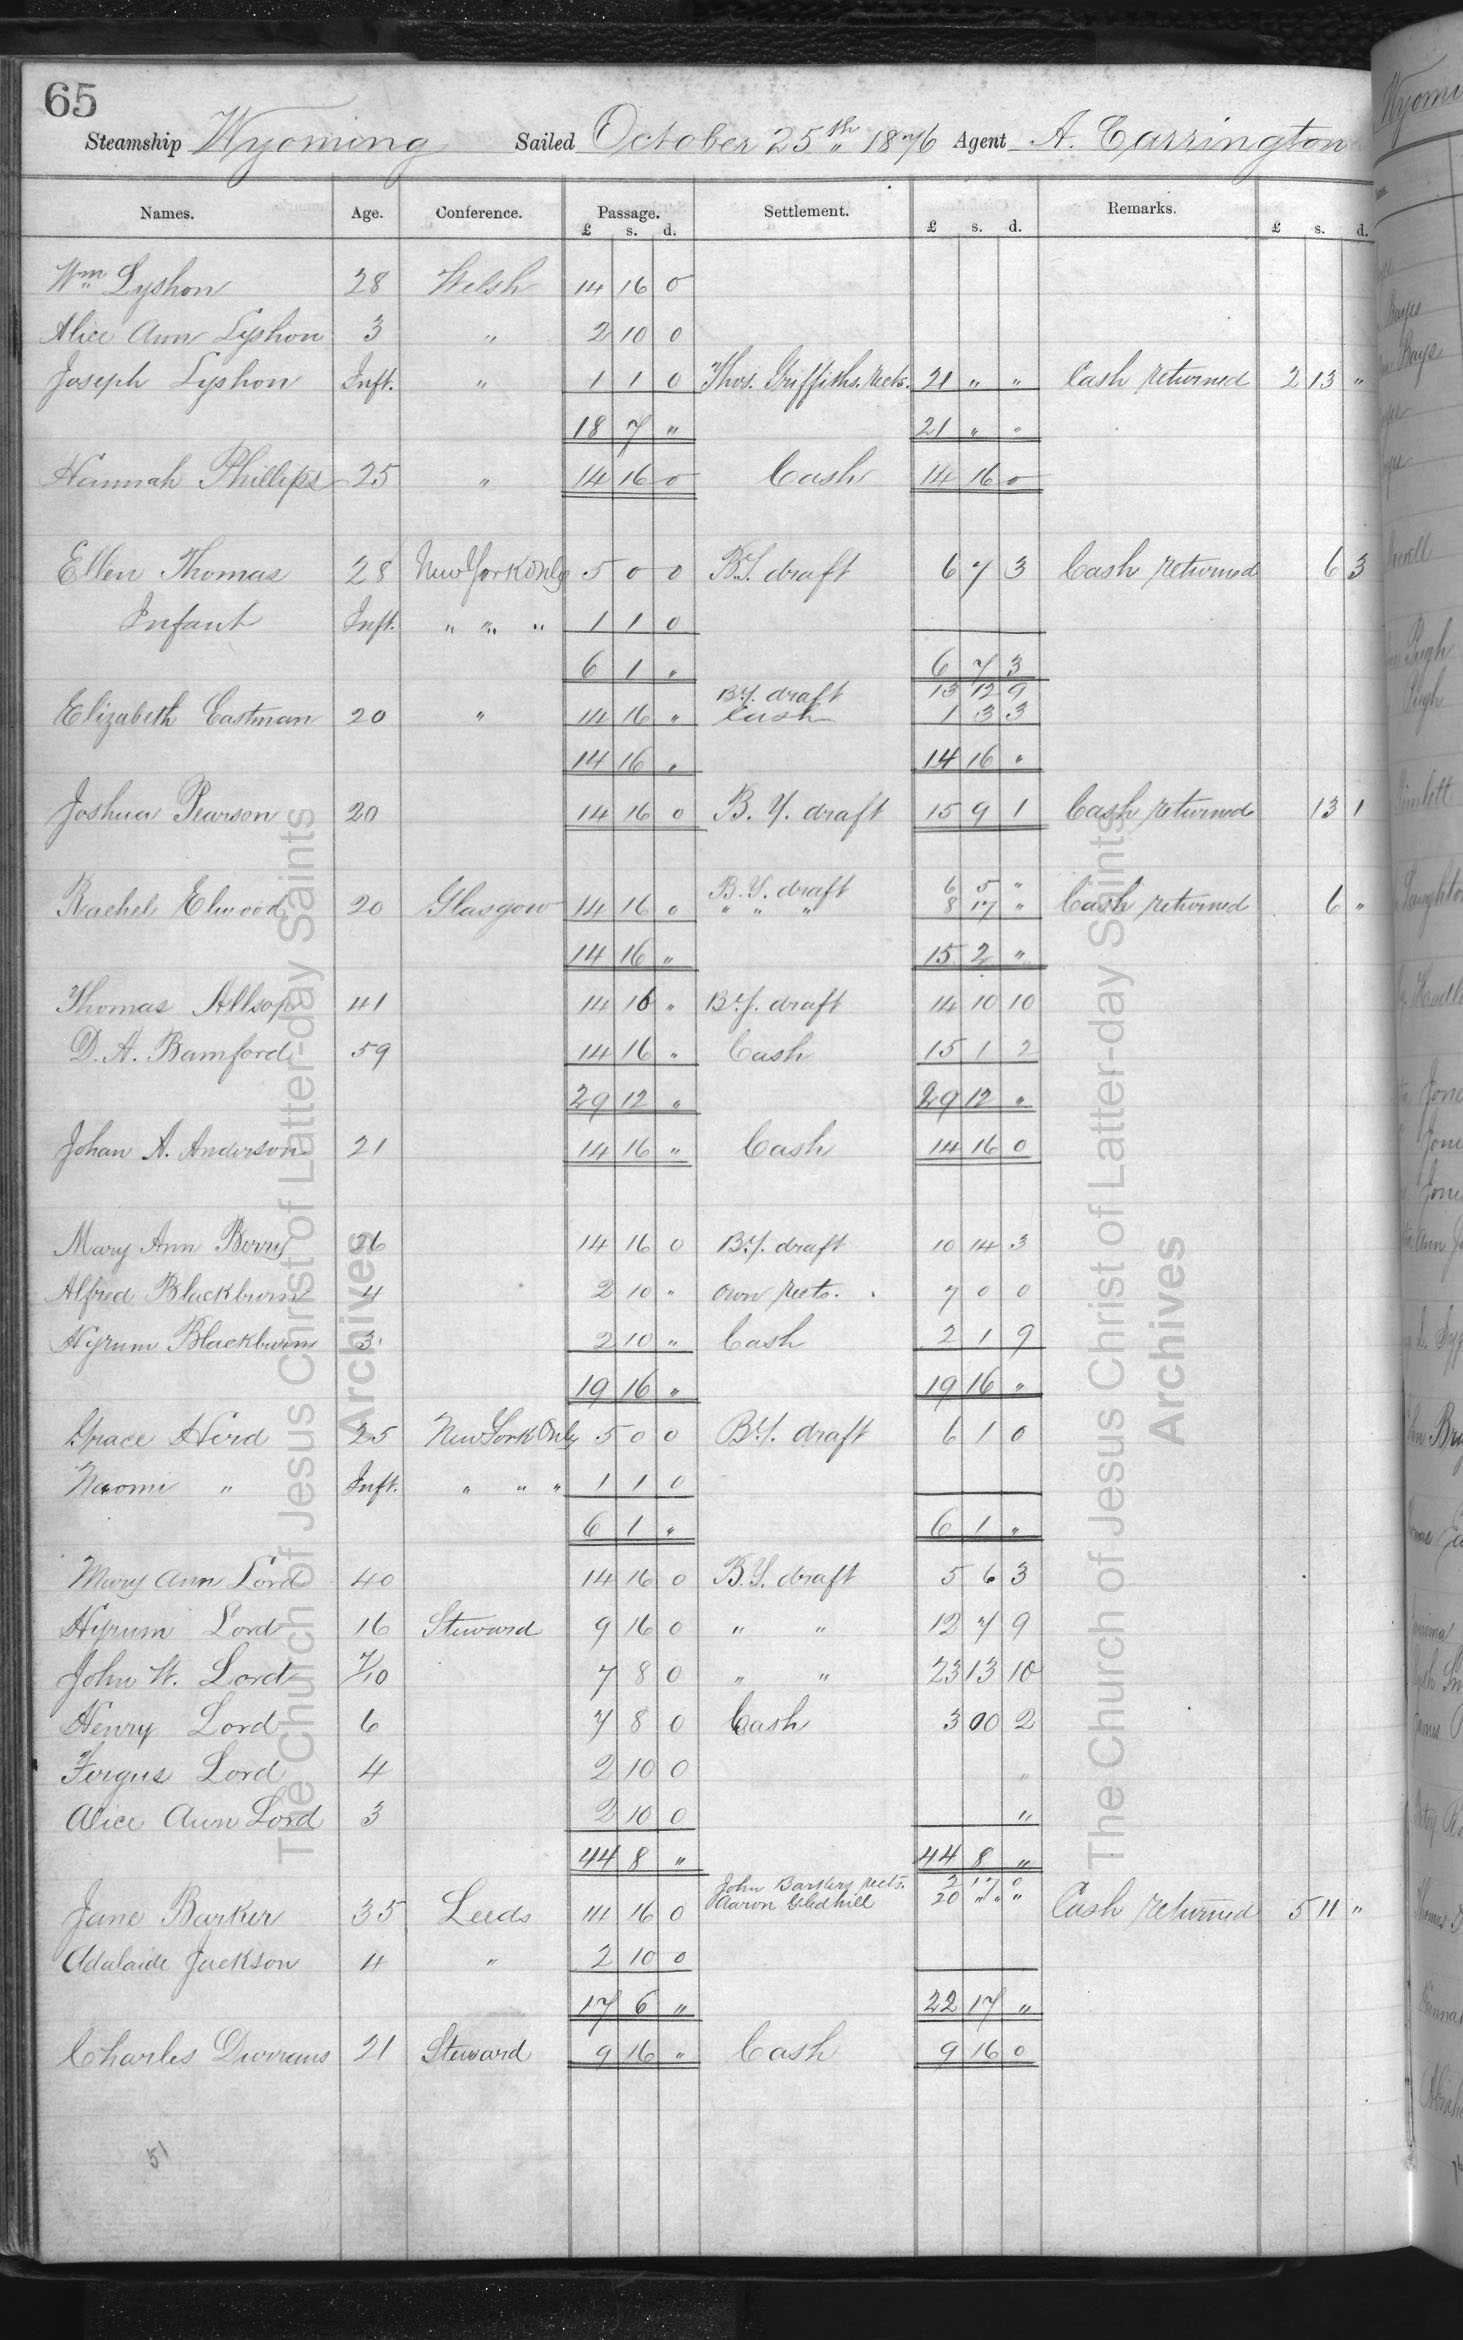 65
Steamship Wyoming Sailed October 25th 1876 Agent A. Carrington
Names. Age. Conference. Passage. Settlement. Remarks.
£ s. d. £ s. d. £ s. d.
Wm Lyshon 28 Welsh 14 16 0
Alice Ann Lyshon 3 " 2 10 0
Joseph Lyshon Inft. " 1 1 0 Thos. Griffiths. rects. 21 " " Cash returned 2 13 "
18 7 " 21 " "
Hannah Phillips 25 " 14 16 0 Cash 14 16 0
Ellen Thomas 28 New York Only 5 0 0 B.Y. draft 6 7 3 Cash returned 6 3
Infant Inft. " " " 1 1 0
6 1 " 6 7 3
B.Y. draft 13 12 9
Elizabeth Eastman 20 " 14 16 " Cash 1 3 3
14 16 " 14 16 "
Joshua Pearson 20 14 16 0 B. Y. draft 15 9 1 Cash returned 13 1
B.Y. draft 6 5 "
Rachel Elwood 20 Glasgow 14 16 0 " " " 8 17 " Cash returned 6 "
14 16 " 15 2 "
Thomas Allsop 41 14 16 " B.Y. draft 14 10 10
D. A. Bamford 59 14 16 " Cash 15 1 2
29 12 " 29 12 "
Johan A. Anderson 21 14 16 " Cash 14 16 0
Mary Ann Berry 26 14 16 0 B.Y. draft 10 14 3
Alfred Blackburn 4 2 10 " own rects. 7 0 0
Hyrum Blackburn 3 2 10 " Cash 2 1 9
19 16 " 19 16 "
Grace Hird 25 New York Only 5 0 0 B.Y. draft 6 1 0
Naomi " Inft. " " " 1 1 0
6 1 " 6 1 "
Mary Ann Lord 40 14 16 0 B.Y. draft 5 6 3
Hyrum Lord 16 Steward 9 16 0 " " 12 7 9
John W. Lord 7/10 7 8 0 " " 23 13 10
Henry Lord 6 7 8 0 Cash 3 00 2
Fergus Lord 4 2 10 0 "
Alice Ann Lord 3 2 10 0 "
44 8 " 44 8 "
John Barkers rects. 2 17 0
Aaron Gledhill 20 " " "
Jane Barker 35 Leeds 14 16 0 Cash returned 5 11 "
Adalaide Jackson 4 " 2 10 0
17 6 " 22 17 "
Charles Durrans 21 Steward 9 16 " Cash 9 16 0
51
The Church of Jesus Christ of Latter-day Saints
Archives
The Church of Jesus Christ of Latter-day Saints
Archives